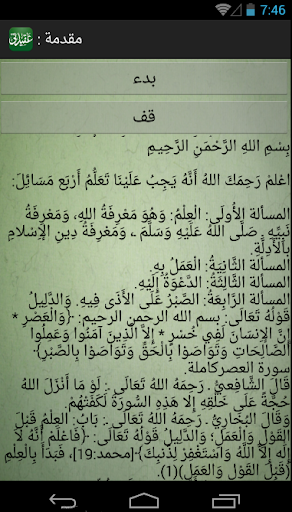 7:46
مقدمة :
عقيدتي
بدء
قف
بِسْمِ اللهِ الرَّحْمَنِ الرَّحِيمِ
اعْلمْ رَحِمَكَ اللهُ أَنَّهُ يَجِبُ عَلَيْنَا تَعَلُّمُ أَرْبَع مَسَائِلَ:
المسألة الأُولَى: الْعِلْمُ: وَهُوَ مَعْرِفَةُ اللهِ، وَمَعْرِفَةُ
نَبِيِّهِ صَلَّى اللهُ عَلَيْهِ وَسَلَّمَ ، وَمَعْرِفَةُ دِينِ الإِسْلامِ
بالأَدِلَّةِ.
المسألة الثَّانِيَةُ: الْعَمَلُ بِهِ.
المسألة الثَّالِثَةُ: الدَّعْوَةُ إِلَيْهِ.
المسألة الرَّابِعَةُ: الصَّبْرُ عَلَى الأَذَى فِيهِ. وَالدَّلِيلُ
قَوْلُهُ تَعَالَى: بسم الله الرحمن الرحيم: ﴿وَالْعَصْرِ *
إِنَّ الإِنسَانَ لَفِي خُسْرٍ * إِلاَّ الَّذِينَ آمَنُوا وَعَمِلُوا
الصَّالِحَاتِ وَتَوَاصَوْا بِالْحَقِّ وَتَوَاصَوْا بِالصَّبْرِ﴾
سورة العصركاملة.
قَالَ الشَّافِعيُّ ـ رَحِمَهُ اللهُ تَعَالَى ـ: لَوْ مَا أَنْزَلَ اللهُ
حُجَّةً عَلَى خَلْقِهِ إِلا هَذِهِ السُّورَةَ لَكَفَتْهُمْ
وَقَالَ البُخَارِيُّ ـ رَحِمَهُ اللهُ تَعَالَى ـ: بَابُ: العِلمُ قَبْلَ
القَوْلِ وَالْعَمَلِ؛ وَالدَّلِيلُ قَوْلُهُ تَعَالَى: ﴿فَاعْلَمْ أَنَّهُ لا
إِلَهَ إِلاَّ اللَّهُ وَاسْتَغْفِرْ لِذَنبِكَ﴾[محمد:19]، فَبَدَأَ بِالْعِلْمِ
(قَبْلَ القَوْلِ وَالعَمَلِ)(1).